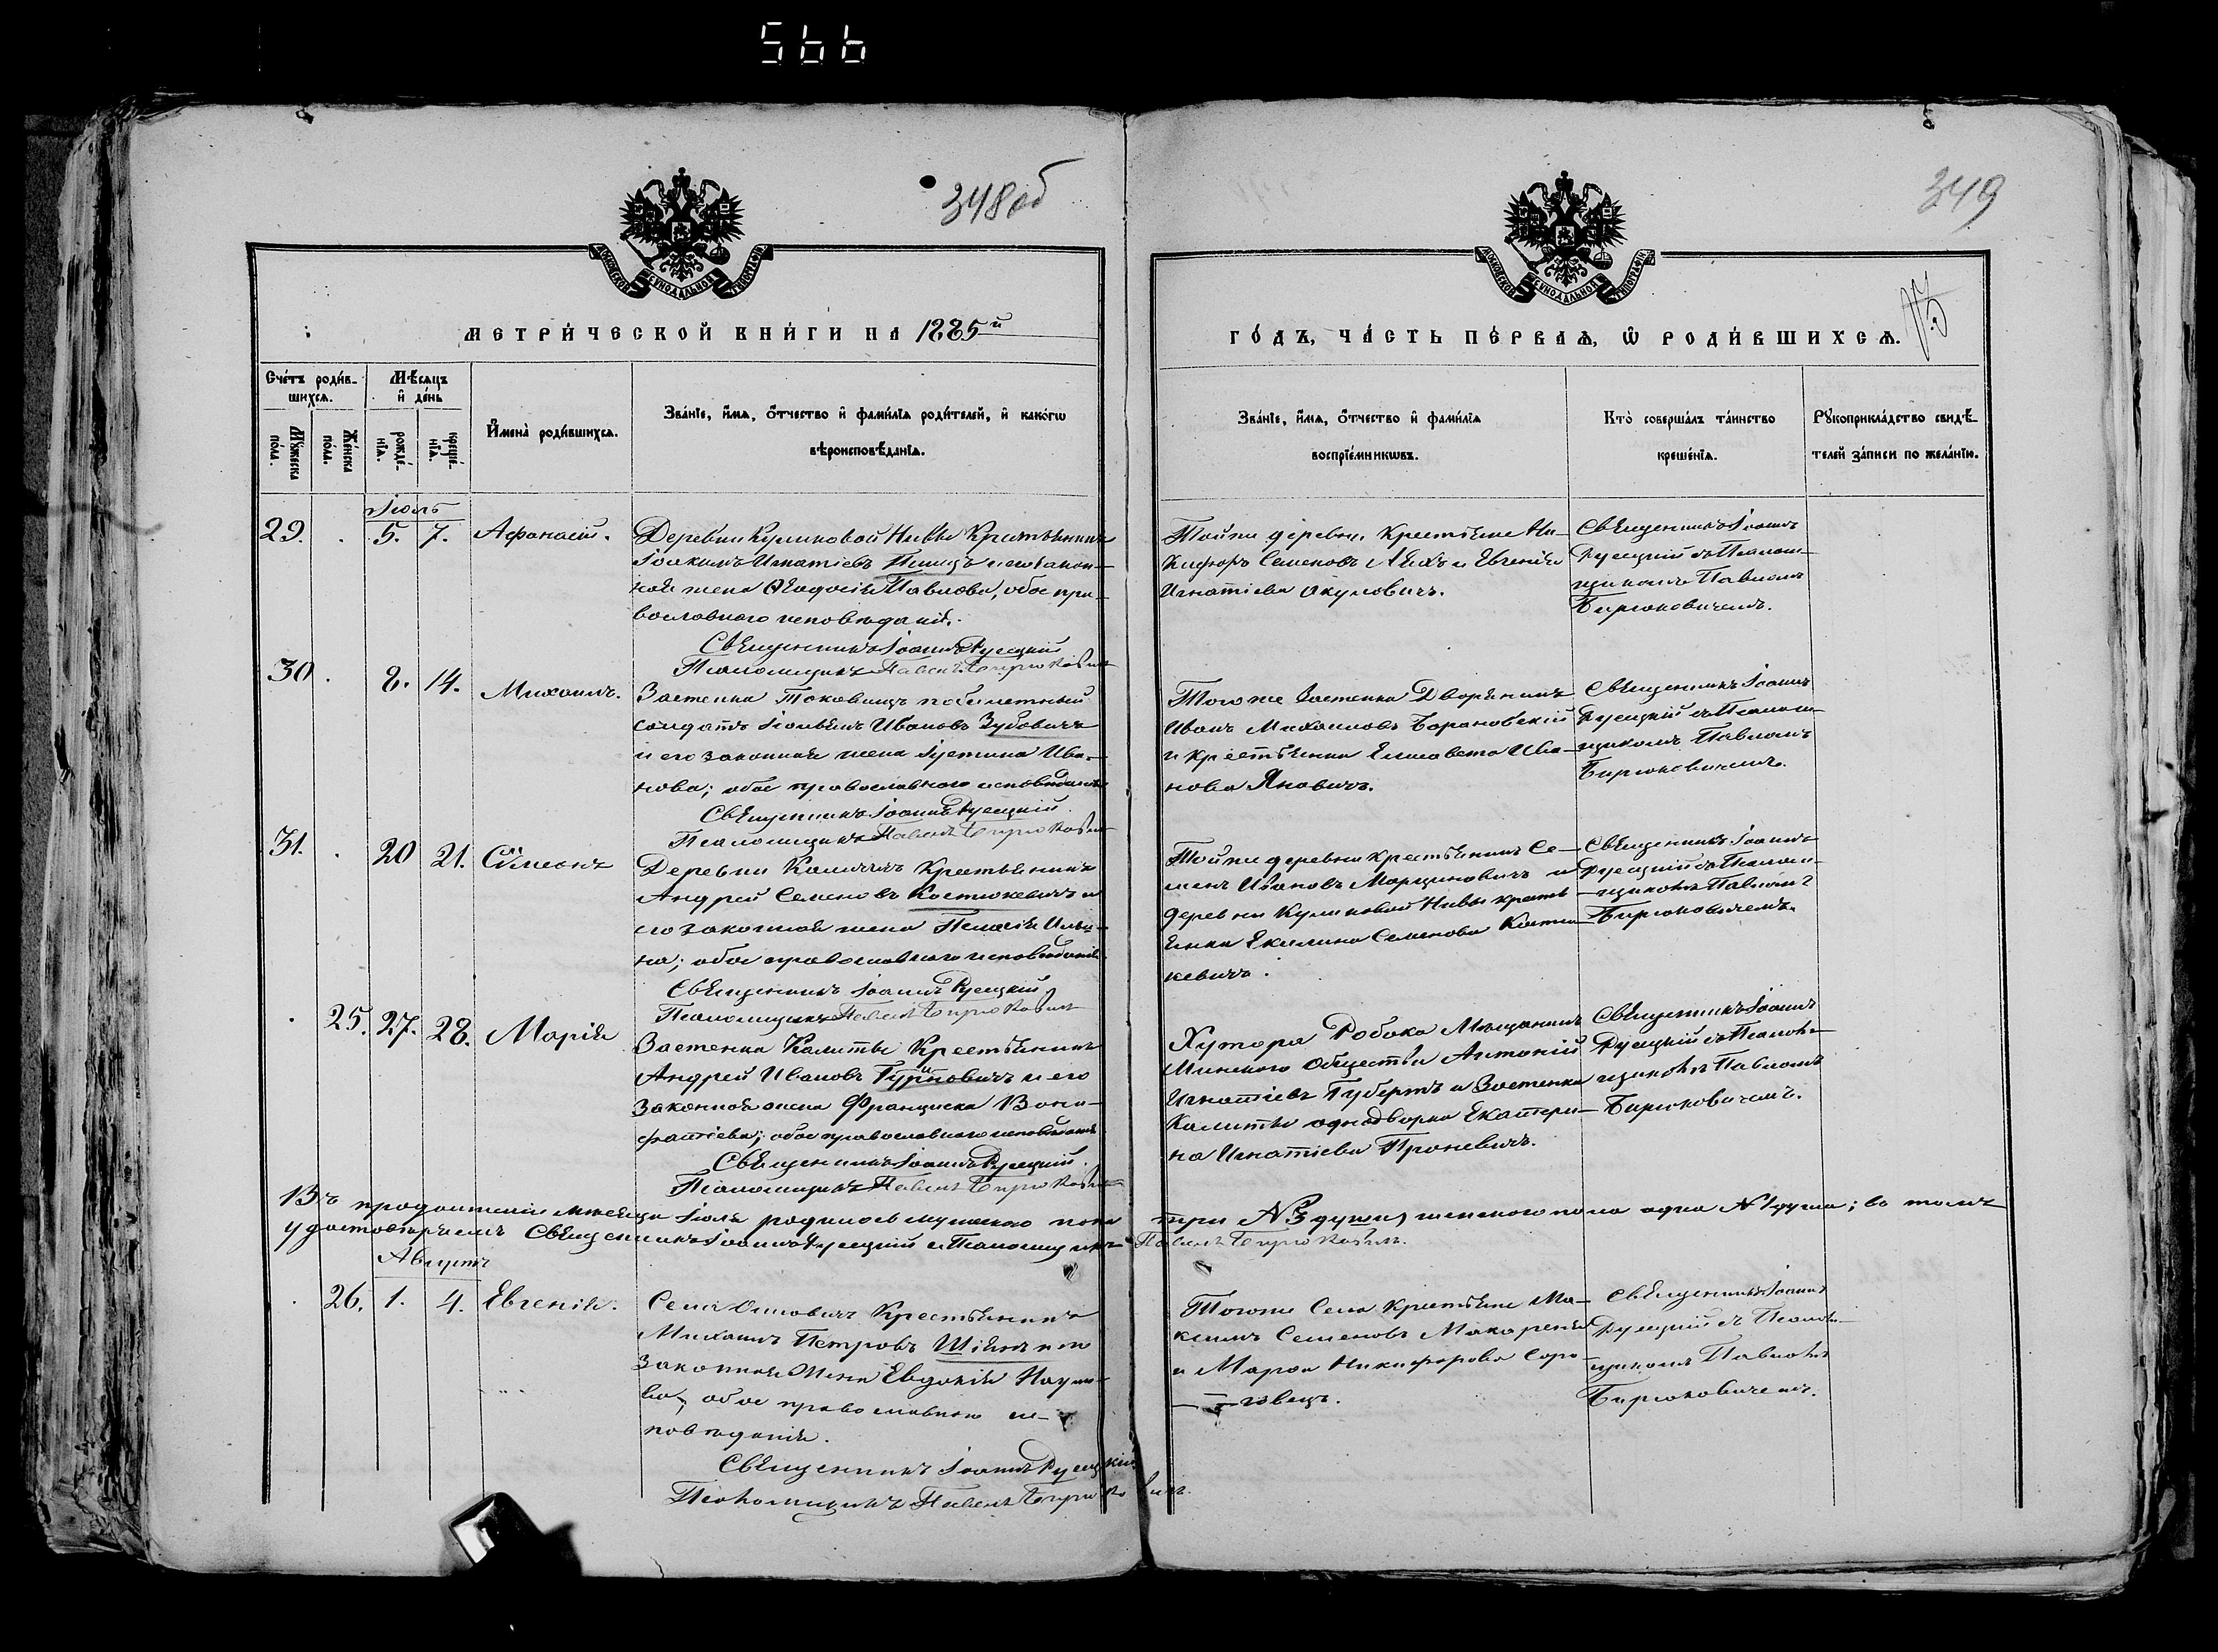 566
348об
349
МОСКОВСКОЙ СѴНОДАЛЬНОЙ ТИПОГРАФІИ
МОСКОВСКОЙ СѴНОДАЛЬНОЙ ТИПОГРАФІИ
МЕТРИ́ЧЕСКОЙ КНИ́ГИ НА 1885й
ГО́ДЪ, ЧА́СТЬ ПЕ́РВАѦ, Ѡ РОДИ́ВШИХСѦ.
Сче́тъ роди́в-
шихсѧ.
Мꙋ́жеска
по́ла.
Же́нска
по́ла.
Мѣ́сѧцъ
и де́нь
рожде́-
нїѧ.
креще́-
нїѧ.
Имена̀ роди́вшихсѧ.
Зва́нїе, и́мѧ, о́тчество и фами́лїѧ роди́телей, и како́гѡ
вѣроисповѣ́данїѧ.
Зва́нїе, и́мѧ, о́тчество и фами́лїѧ
воспрїе́мникѡвъ.
Кто̀ соверша́лъ та́инство
креще́нїѧ.
Рꙋкоприкла́дство свидѣ́-
телей за́писи по жела́нїю.
Іюль
29. . 5. 7. Афанасій.
Деревни Куликовой Нивы Крестьянинъ
Іоакимъ Игнатіевъ и его закон-
ная жена Ѳеодосія Павлова, обое пра-
вославного исповѣданія.
Священникъ Іоаннъ Русецкій
Псаломщикъ Павелъ Бирюковичъ
Тойже деревни Крестьяне Ни-
кифоръ Семеновъ и Евгенія
Игнатіева Окуловичъ.
Священникъ Іоаннъ
Русецкій съ Псалом-
щикомъ Павломъ
Бирюковичемъ.
30 . 8. 14. Михаилъ.
Застенка Токовищъ побилетный
солдатъ Иванов Зубовичъ
и его законная жена Іустина Ива-
нова; обое православного исповѣданія
Священникъ Іоаннъ Русецкій
Псаломщикъ Павелъ Бирюковичъ
Тогоже Застенка Дворянинъ
Иванъ Михаиловъ Барановскій
и крестьянка Елисавета Ива-
нова Яновичъ.
Священникъ Іоаннъ
Русецкій съ Псалом-
щикомъ Павломъ
Бирюковичемъ.
31. . 20 21. Сѵмеонъ
Деревни Крестьянинъ
Андрей Семеновъ Костюкевичъ и
его законная жена Пелагія Ильи-
на; обое православного исповѣданія.
Священникъ Іоаннъ Русецкій
Псаломщикъ Павелъ Бирюковичъ
Тойже деревни крестьянинъ Се-
менъ Ивановъ Марциновичъ и
деревни Куликовой Нивы кресть-
янка Семенова Костю-
кевичъ.
Священникъ Іоаннъ
Русецкій съ Псалом-
щикомъ Павломъ
Бирюковичемъ.
. 25. 27. 28. Марія
Застенка Калиты Крестьянинъ
Андрей Ивановъ Гуриновичъ и его
законная жена Франциска Бони-
фатіева; обое православного исповѣданія
Священникъ Іоаннъ Русецкій.
Псаломщикъ Павелъ Бирюковичъ
Хутора Робока Мѣщанинъ
Минского Общества Антоній
Игнатіевъ Губертъ и Застенка
Калиты однодворка Екатери-
на Игнатіева Проневичъ.
Священникъ Іоаннъ
Русецкій съ Псалом-
щикомъ Павломъ
Бирюковичемъ.
Въ продолженіи мѣсяца Іюля родилось мужеского пола три №3 души, женского пола одна №1 душа; въ томъ
удостовѣряемъ Священникъ Іоаннъ Русецкій и Псаломщикъ Павелъ Бирюковичъ.
Августъ
. 26. 1. 4. Евгенія.
Села Крестьянинъ
Михаилъ Петровъ и его
законная жена Евдокія Наумо-
ва, обое православного ис-
повѣданія.
Священникъ Іоаннъ Русецкій
Псаломщикъ Павелъ Бирюковичъ.
Тогоже Села Крестьяне Ма-
ксимъ Семеновъ Макареня
и Марѳа Никифорова Соро-
говецъ.
Священникъ Іоаннъ
Русецкій съ Псалом-
щикомъ Павломъ
Бирюковичемъ.